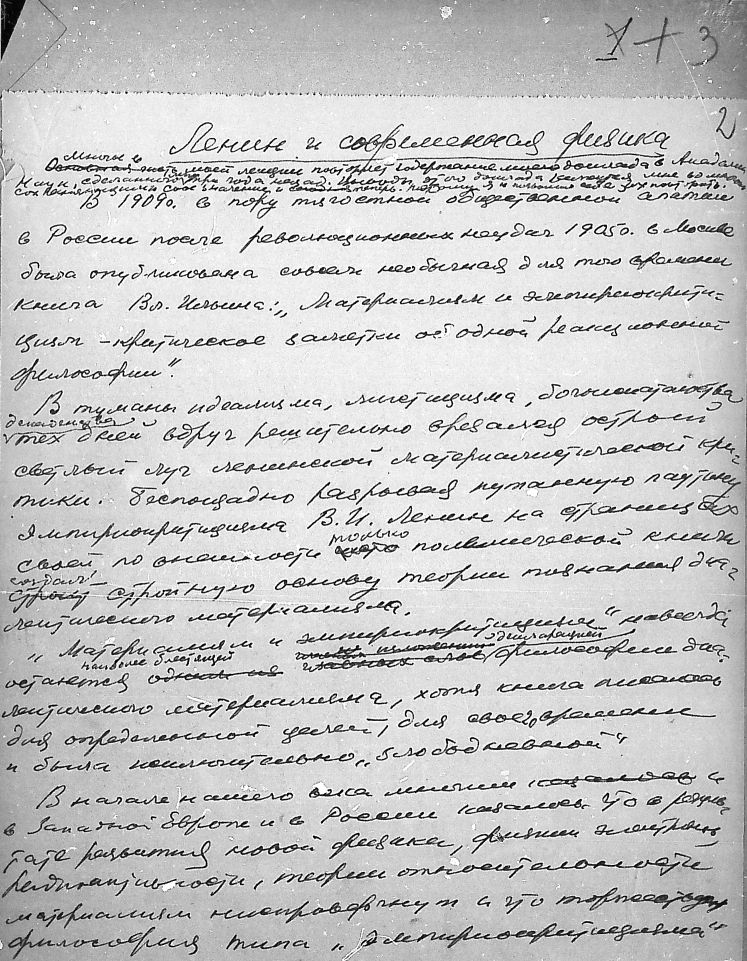 X + 3
2
Ленин и современная физика
многом в
Основная часть моей лекции повторяет содержание моего доклада в Академии
Наук, сделанного три года назад. Выводы этого доклада кажутся мне во многом
сохраняющими свое значение и теперь, поэтому я и позволю себе их повторить.
В 1909г. в пору тягостной общественной апатии
в России после революционных неудач 1905г. в Москве
была опубликована совсем необычная для того времени
книга Вл. Ильина: „Материализм и эмпириокрити-
цизм – критические заметки об одной реакционной
философии".
В туманы идеализма, мистицизма, богоискательства
декадентства
тех дней вдруг решительно врезался острый
светлый луч ленинской материалистической кри-
тики. Беспощадно разрывая путанную паутину
эмпириокритицизма В.И. Ленин на страницах
только
своей по внешности полемической книги
создал
строит стройную основу теории познания диа-
лектического материализма.
„Материализм и эмпириокритицизм" навсегда
наиболее блестящей декларацией
останется одним из главных слов философии диа-
лектического материализма, хотя книга писалась
для определенной целей, для своего времени
и была исключительно „злободневной".
В начале нашего века многим казалось и
в Западной Европе и в России казалось что в резуль-
тате развития новой физики, физики электрона,
радиоактивности, теории относительности
материализм ниспровергнут и что торжествует
философия типа „эмпириокритицизма"